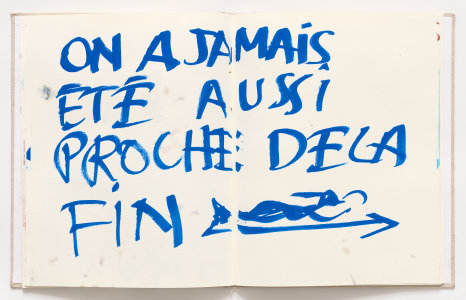 ON A JAMAIS
ÉTÉ AUSSI
PROCHE DE LA
FIN